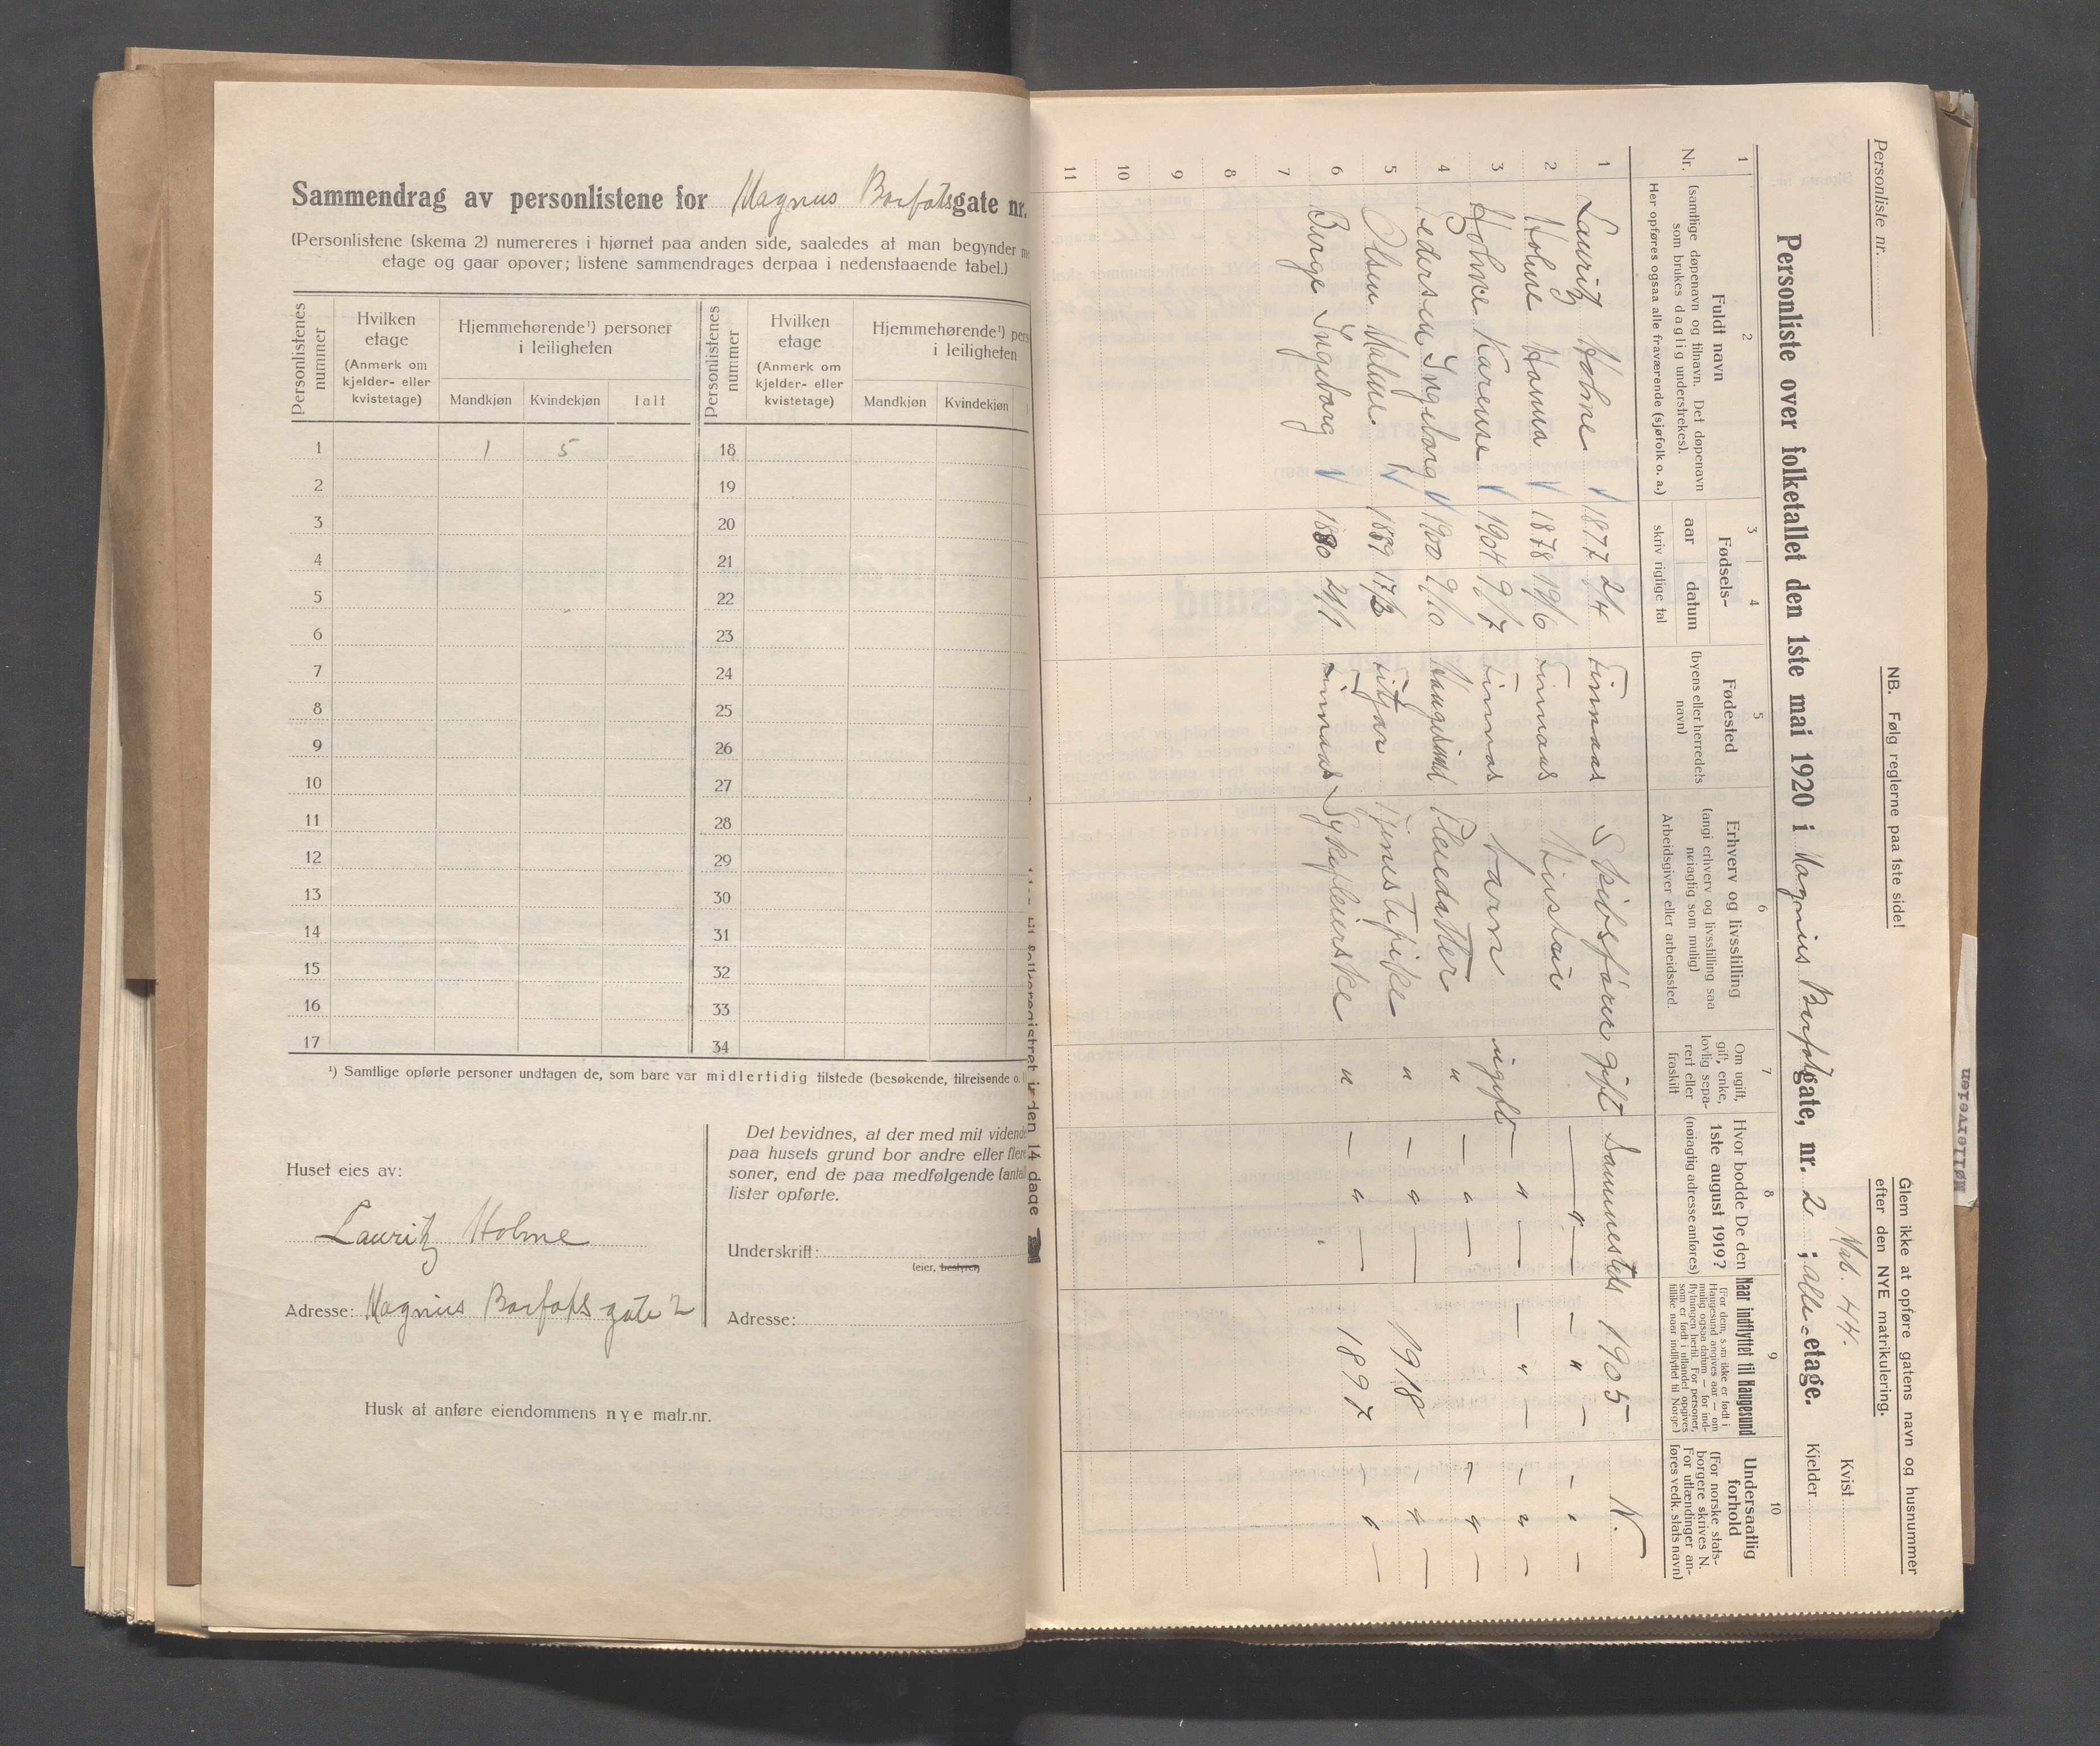 Sammendrag av personlistene for Magnus Barfotsgate nr.
(Personlistene (skema 2) numereres i hjørnet paa anden side, saaledes at man begynder
etage og gaar opover; listene sammendrages derpaa i nedenstaaende tabel.)
Personlistenes nummer
Hvilken etage
(Anmerk om kjelder- eller kvistetage)
Hjemmehørende¹) personer i leiligheten
Mandkjøn Kvindekjøn Ialt
Personlistenes nummer
Hvilken etage
(Anmerk om kjelder- eller kvistetage)
Hjemmehørende¹) pers
i leiligheten
Mandkjøn Kvindekjøn
1 1 5 18
2 19
3 20
4 21
5 22
6 23
7 24
8 25
9 26
10 27
11 28
12 29
13 30
14 31
15 32
16 33
17 34
¹) Samtlige opførte personer undtagen de, som bare var midlertidig tilstede (besøkende, tilreisende o.
Huset eies av:
Lauritz Holme
Adresse: Magnus Barfots gate 2
Det bevidnes, at der med mit vidende
paa husets grund bor andre eller flere
soner, end de paa medfølgende (antal
lister opførte.
Underskrift:
(eier, bestyrer)
Adresse:
Husk at anføre eiendommens nye matr.nr.
til folkeregistret inden 14 dage
Personliste nr.
NB. Følg reglerne paa 1ste side!
Glem ikke at opføre gatens navn og husnummer
efter den NYE matrikulering.
Mat. 44.
Kvist
Kjelder
Personliste over folketallet den 1ste mai 1920 i Magnus Barfotgate, nr. 2 ; alle etage.
1 2 3 4 5 6 7 8 9 10
Nr.
Fuldt navn
(samtlige døpenavn og tilnavn. Det døpenavn
som brukes daglig understrekes).
Her opføres ogsaa alle fraværende (sjøfolk o. a.)
Fødsels-
aar datum
skriv rigtige tal
Fødested
(byens eller herredets
navn)
Erhverv og livsstilling
(angi erhverv og livsstilling saa
nøiagtig som mulig)
Arbeidsgiver eller arbeidssted.
Om ugift,
gift, enke,
lovlig sepa-
rert eller
fraskilt
Hvor bodde De den
1ste august 1919?
(nøiagtig adresse anføres)
Naar indflyttet til Haugesund
(For dem, som ikke er født i
Haugesund angives aar — om
mulig ogsaa datum — for ind-
flytningen hertil. For personer,
som er født i utlandet opgives
tillike naar indflyttet til Norge)
Undersaatlig
forhold
(For norske stats-
borgere skrives N.
For utlændinger an-
føres vedk. stats navn)
1 Lauritz Holme 1877 2/4 Finnaas Skibsfører gift Sammesteds 1905 N.
2 Holme Hanna 1878 19/6 Finnaas Hustru — " — — " — — " —
3 Holme Karense 1904 9/7 Finnaas barn ugift — " — — " — — " —
4 Pedersen Ingeborg 1900 9/10 Haugesund Pleiedatter " — " — " " —
5 Olsen Maline. 1889 17/3 Fitjar Tjenestepike " — " — 1918 — " —
6 Børge Ingeborg 1880 21/1 Finnaas Sykepleierske " — " — 1897 — " —
7
8
9
10
11
Møllerveien